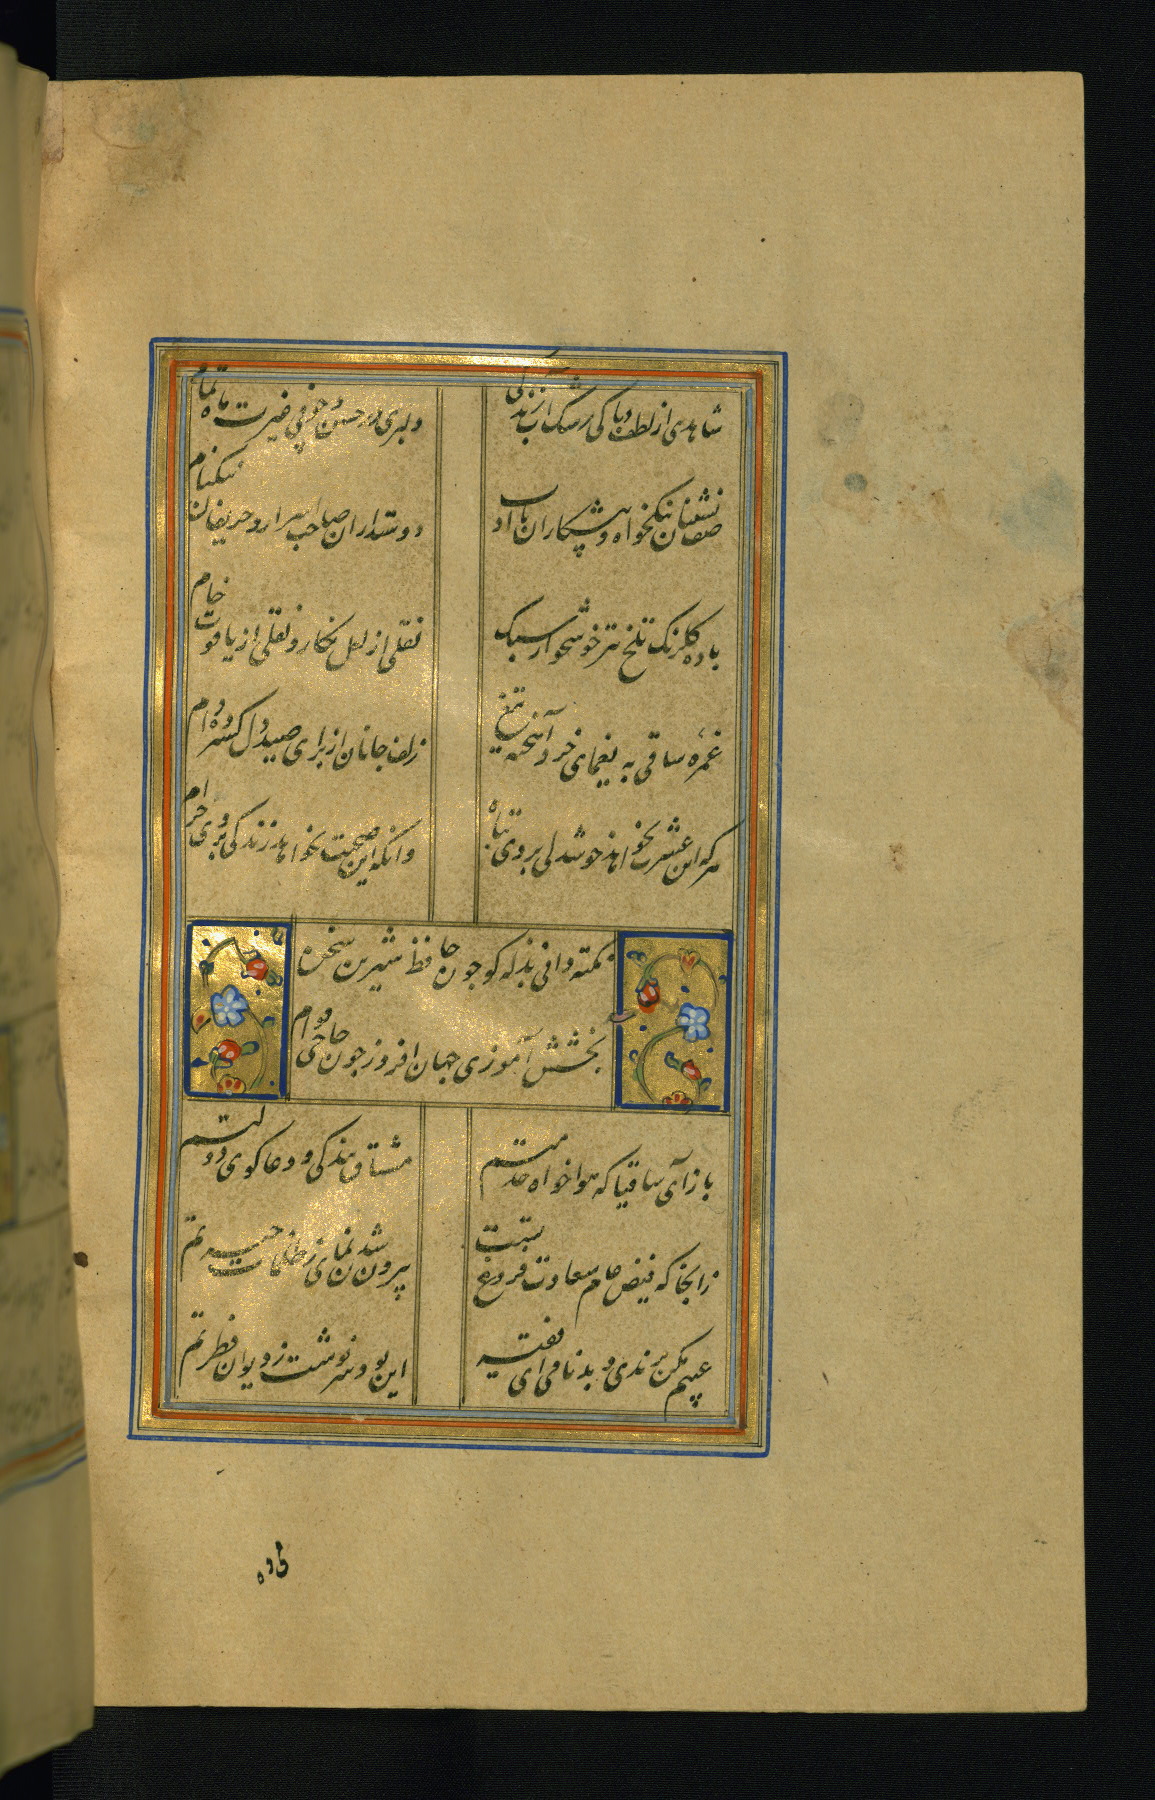 شاهدی از لطف و پاکی رشک آب زندگی
دلبری در حسن و خوبی غیرت ماه تمام
صف نشینان نیکخواه و پیشکاران با ادب
دوستداران صاحب اسرار و حریفان نیکنام
باده گلرنگ تلخ تیز خوشخوار سبک
نقلی از لعل نگار و نقلی از یاقوت خام
غمزه ساقی به یغمای خرد آهخته تیغ
زلف جانان از برای صید دل گسترده دام
هر که این عشرت نخواهد خوشدلی بر وی تباه
وانکه این صحبت نخواهد زندگی بر وی حرام
نکته دانی بذله کو چون حافظ شیرین سخن
بخشش آموزی جهان افروز چون حاجی قوام
باز آی ساقیا که هوا خواه خدمتم
مشتاق بندگی و دعا کوی دولتم
زانجا که فیض جام سعادت فروغ تست
بیرون شدن نمای ز ظلمات حیرتم
عیبم مکن برندی و بدنامی ای فقیه
این بود سرنوشت ز دیوان فطرتم